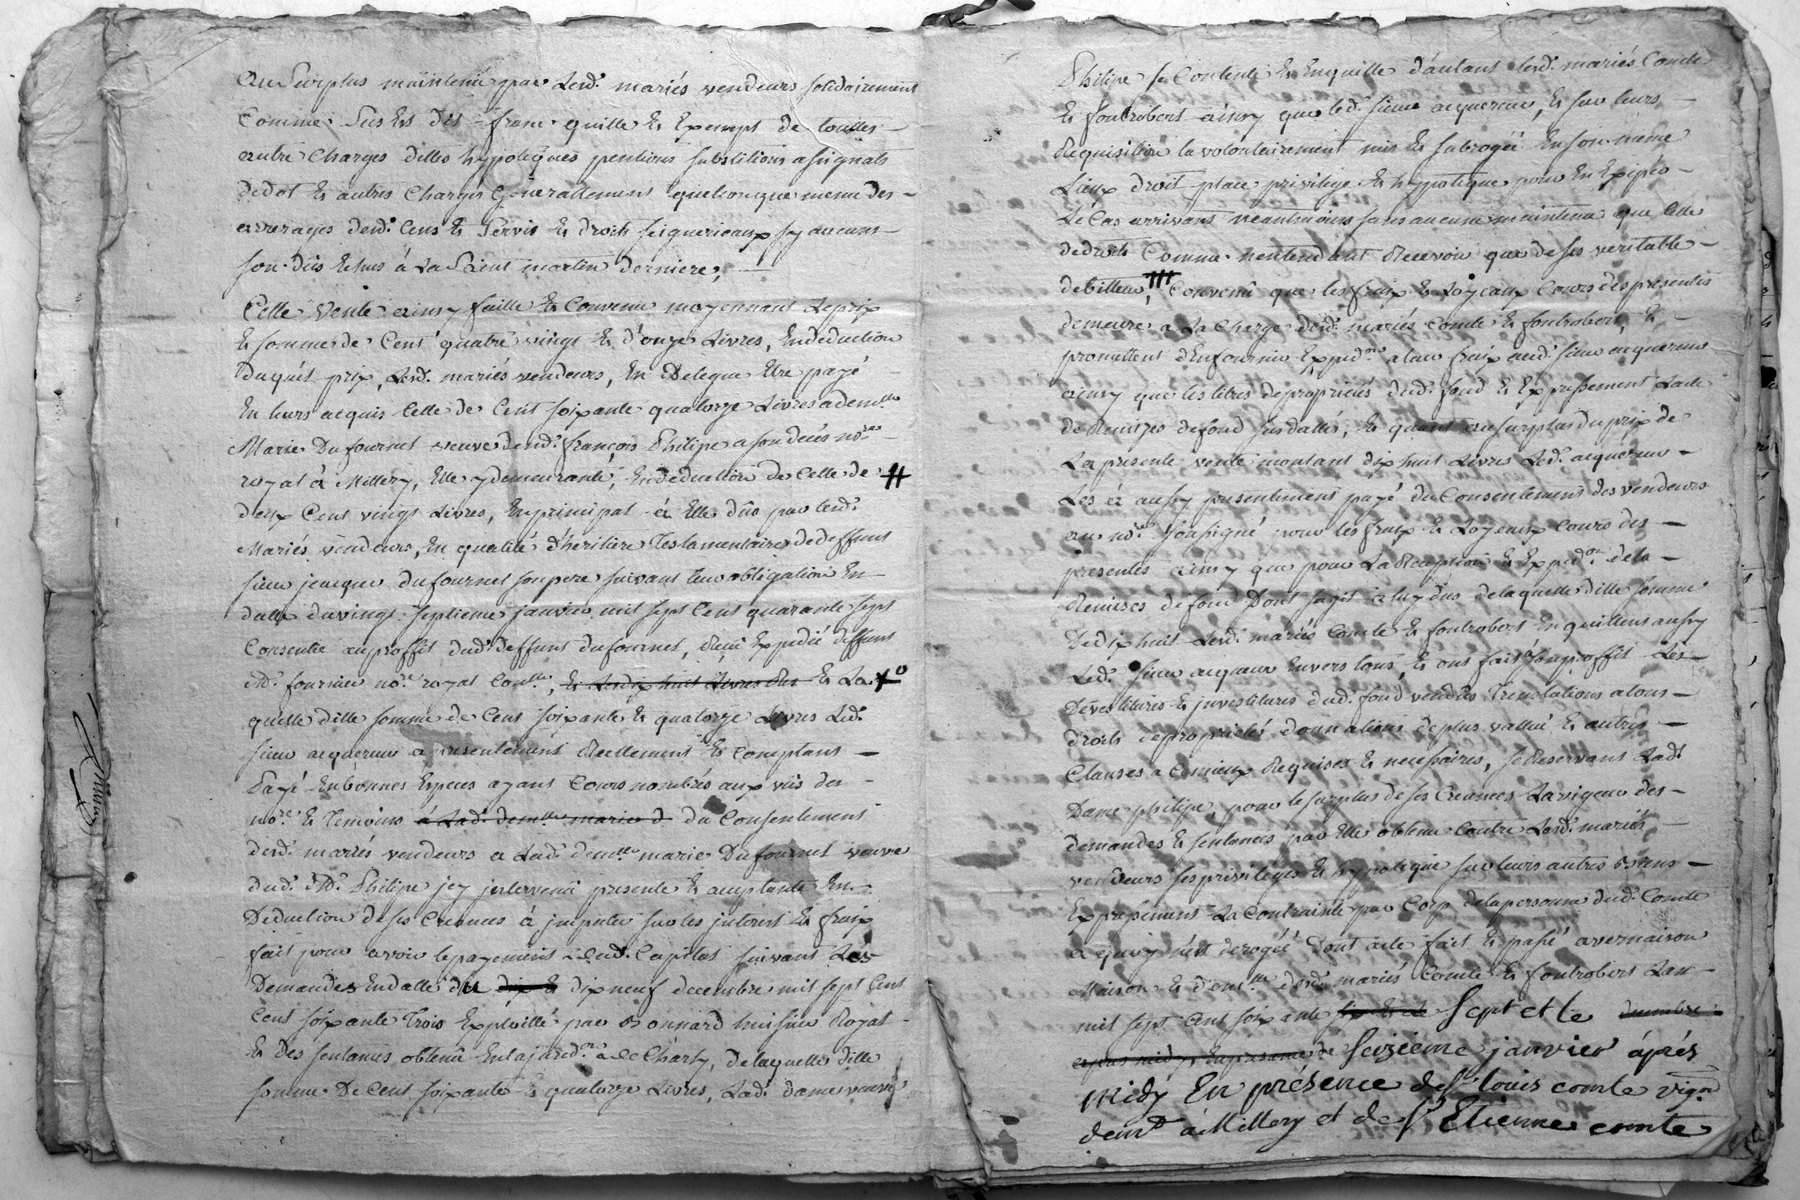 au surplus maintenu par lesd. mariés vendeurs solidairement
comme sus est dit franc quitte et exempt de touttes
autre charges dittes hypoteques pentions substitutions assignats
dedot et autres charges généralement quelconque meme des
arrerages desd. cens et servis et droits seigneuriaux sy aucuns
son düs echus à la saint martin derniere,
Cette vente ainsy faitte et convenu moyennant le prix
et somme de cent quatre vingt et d'onze livres, en deduction
duquel prix, lesd. mariés vendeurs, en delegue etre payé
en leurs acquis celle de cent soixante quatorze livres a demlle
Marie Dufournel veuve de md. françois Philipe a son decés nore
royal à Millery, elle y demeurante, en deduction de celle de #
deux cent vingt livres, en principal à elle düe par lesd.
mariés vendeurs, en qualité d'héritiere testamentaire de deffunt
sieur jacque dufournel son pere suivant leur obligation en
datte du vingt septieme janvier mil sept cent quarante sept
consentie au proffit dud. deffunt dufournel, reçu expedié deffunt
Md. fournier nore royal et la
quelle ditte somme de cent soixante et quatorze livres led.
sieur acquereur a presentement reellement et comptant
payé en bonnes especes ayant cours nombrés aux vüs des
nore et temoins à lad. demlle marie d du consentement
desd. mariés vendeurs a lad. demlle marie Dufournel veuve
dud. Md. Philipe jcy jntervenü presente et acceptante en
deduction de ses creances à jmputer sur les jnterest et fraix
fait pour avoir le payement dud. capital suivant les
demandes en datte du dix et dix neuf decembre mil sept cent
cent soixante trois exploitté par Bonnard huissier royal
et des sentences obtenü en la jurid.on de Charly, de laquelle ditte
somme de cent soixante et quatorze livres, lad. dame veuve
Philipe se contente et en quitte d'autant lesd. mariés Comte
et fontrobert ainsy que led. sieur acquereur, et sur leurs
requisition la volontairement mis et subrogée en son meme
lieux droit place privilege et hypoteque pour en
le cas arrivant neantmoins sans aucune maintenue que celle
de droits comme n'entendant recevoir que de ses veritable
debitteur, convenü que les fraix et loyeaux couts des presentes
demeure a la charge desd. mariés comte et fontrobert, et
promettent d'en fournir expedon a leur fraix aud. sieur acquereur
ainsy que les titres de propriétés dud. fond et expressement l'acte
de remises de fond susdatté, et quant au surplus du prix de
la presente vente montant dix huit livres led. acquereur
les a aussy presentement payé du consentement des vendeurs
au nore soussigné pour les fraix et loyeaux couts des
presentes ainsy que pour la reception et expedon de la
remises de fond dont sagit a luy düs de laquelle ditte somme
de dix huit lesd. mariés comte et fontrobert en quittent aussy
led. sieur acquereur envers tous, et ont fait a son proffit les
devestitures et jnvestitures dud. fond vendüs translations a tous
droits de propriétés donnations de plus vallüe et autres
clauses a ce mieux requises et necessaires, se reservant lad.
Dame philipe pour le surplus de ses creances la vigeur des
demandes et sentences par elle obtenu contre lesd. mariés
vendeurs ses privileges et hypoteque sur leurs autres biens
expressement la contrainte par corp de la personne dud. Comte
a quoy n'est derogée dont acte fait et passé a vernaison
maison et dom.lle desd. mariés comte et fontrobert l'an
mil sept cent soixante sept et le
seizieme janvier áprés
midy En présence de sr louis comte vign.on
demt à Millery et de sr Etienne comte